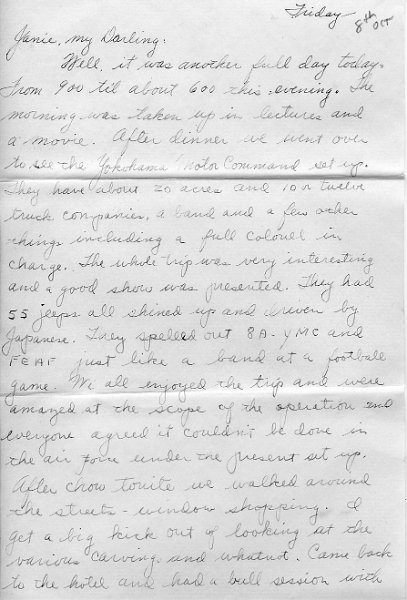 Friday
8th Oct
Janie, my Darling:
Well, it was another full day today.
From 900 til about 600 this evening. The
morning was taken up in lectures and
a movie. After dinner we went over
to see the Yokohama Motor Command set up.
They have about 20 acres and 10 or twelve
truck companies, a band and a few other
things including a full colonel in
charge. The whole trip was very interesting
and a good show was presented. They had
55 jeeps all shined up and driven by
Japanese. They spelled out 8A-YMC and
FEAF just like a band at a football
game. We all enjoyed the trip and were
amazed at the scope of the operation and
everyone agreed it couldn't be done in
the air force under the present set up.
After chow tonite we walked around
the streets - window shopping. I
get a big kick out of looking at the
various carvings and whatnot. Came back
to the hotel and had a bull session with